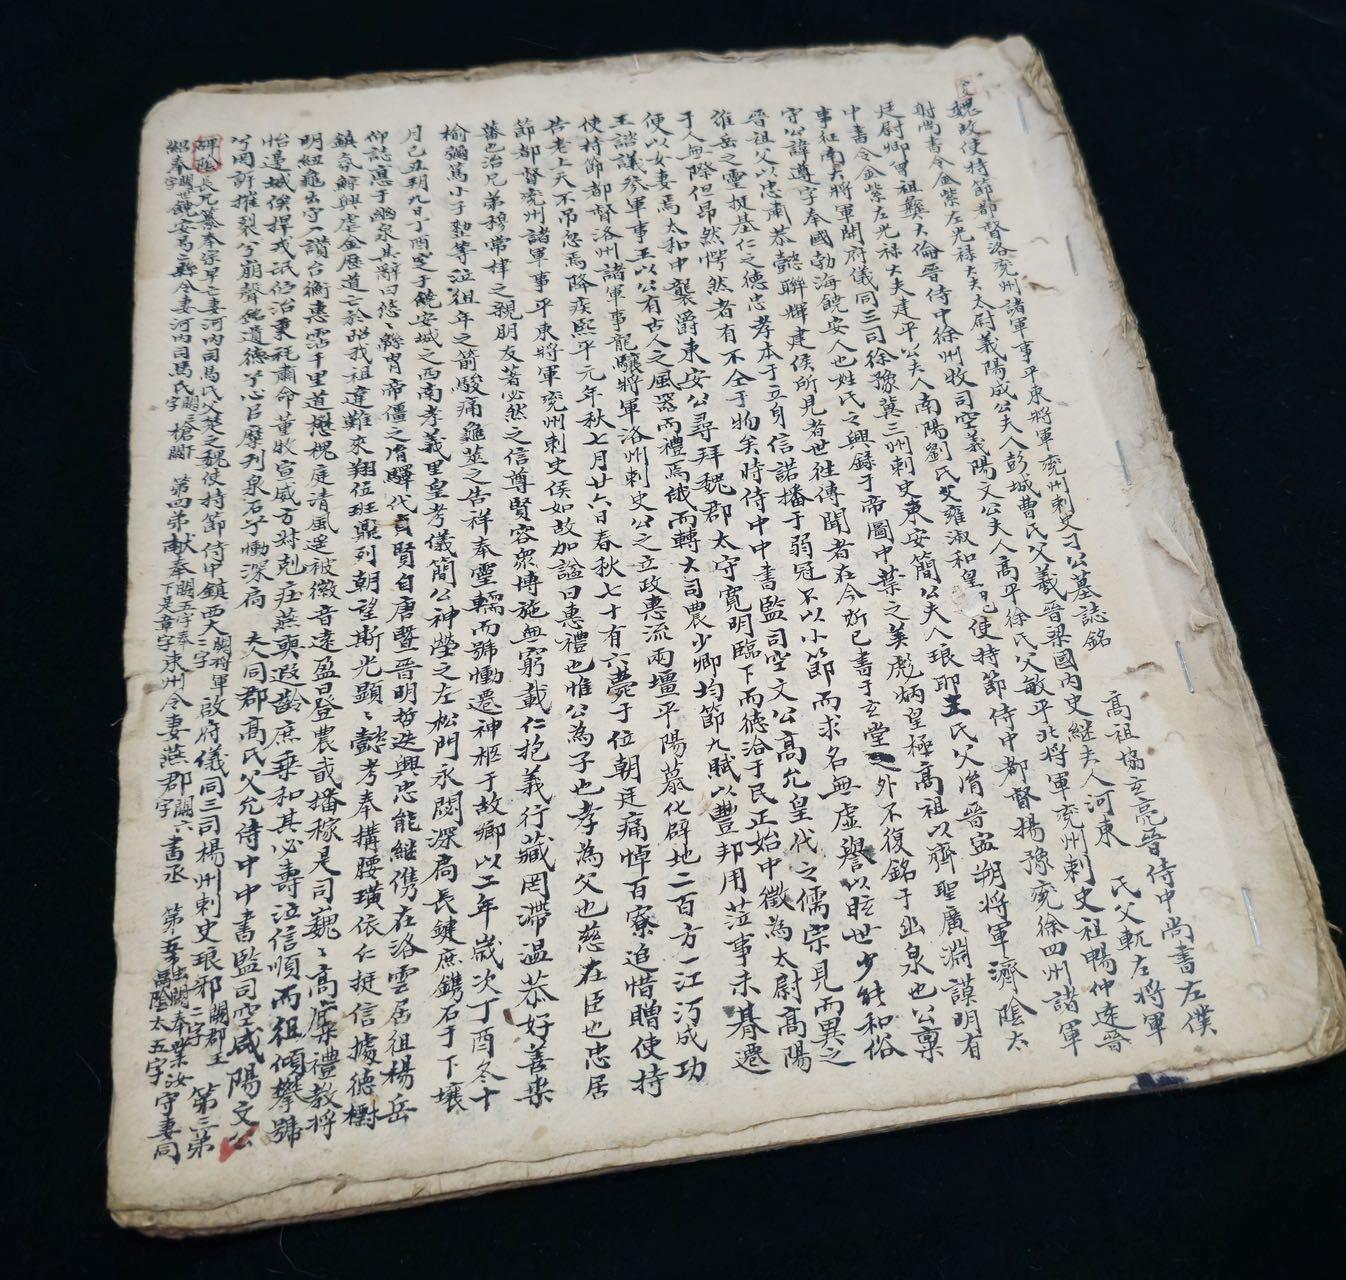 魏故使持節都督洛兗州諸軍事平東將軍兗州刺史刁公墓誌銘
高祖協玄亮晉侍中尚書左僕
射尚書令金紫左光祿大夫太尉義陽成公夫人彭城曹氏父羲晉梁國內史繼夫人河東 氏父 左將軍
廷尉卿曾祖彝大倫晉侍中徐州牧司空義陽文公夫人高平徐氏父敏平北將軍兗州刺史祖暢仲遠晉
中書令金紫左光祿大夫建平公夫人南陽劉氏父 雍淑和皇魏使持節侍中都督揚豫兗徐四州諸軍
事征南大將軍開府儀同三司徐豫冀三州刺史東安簡公夫人琅耶王氏父 晉 朔將軍濟陰太
守公諱遵字奉國勃海饒安人也姓氏之興錄于帝圖中葉之美彪炳皇極高祖以齊聖廣淵謨明有
晉祖父以忠肅恭懿聯輝建侯所見者世往傳聞者在今所已書于玄堂之外不復銘于幽泉也公稟
維岳之靈挺基仁之德忠孝本于立身信諾播于弱冠不以小節而求名無虛譽以眩世少能和俗
于人無際但昂然愕然者有不全于物矣時侍中中書監司空文公高允皇代之儒宗見而異之
便以女妻焉太和中襲爵東安公尋拜魏郡太守寬明臨下而德洽于民正始中徵為太尉高陽
王諮議參軍事王以公有古人之風器而禮焉俄而轉大司農少卿均節九賦以豐邦用蒞事未朞遷
使持節都督洛州諸軍事龍驤將軍洛州刺史公之立政惠流兩壇平陽慕化辟地二百方一江沔成功
告老上天不弔忽焉降疾熙平元年秋七月廿六日春秋七十有六薨于位朝廷痛悼百寮追惜贈使持
節都督兗州諸軍事平東將軍兗州刺史侯如故加謚曰惠禮也惟公為子也孝為父也慈在臣也忠居
蕃也治兄弟穆常棣之親朋友著必然之信尊賢容眾博施無窮載仁抱義行藏罔滯溫恭好善樂
榆彌篤小子 等泣徂年之箭駿痛龜筮之告祥奉靈轜而號慟遷神柩于故鄉以二年歲次丁酉冬十
月己丑朔九日丁酉窆于饒安城之西南孝義里皇考儀簡公神塋之左松門永閟深扃長鍵庶鐫石于下壤
仰誌悳于幽泉其辭曰悠々綿胄帝 之胤驛代貞賢自唐暨晉明哲迭興忠能繼儁在洛雲居徂楊岳
鎮氛鯨興虐金歷道亡於昭我祖違難來翔位班鼎列朝望斯光顯々懿考奉構腰璜依仁挺信據德樹
明紐龜出守一讚台衡惠霑千里道懋槐庭清風遥被徽音遠盈曰登農司播稼是司巍々高廩禮教將
怡邊城俟捍戎氓佇治秉旄肅命董牧宣威方對剋莊燕頤遐齡庶乘和其必壽泣信順而徂傾攀號
兮罔訴摧裂兮崩聲銘遺德兮心臣摩列泉石兮慟深扃 夫人同郡高氏父允侍中中書監司空咸陽文公
碑陰 長兄纂奉宗早亡妻河內司馬氏父楚之魏使持節侍中鎮西大闕三字將軍啟府儀同三司楊州刺史琅邪闕二字郡王 第三弟
紹奉闕一字世饒安易二縣令妻河內司馬氏闕六字槍闕下 第四弟獻奉闕五字奉下是章字東州令妻燕郡闕六字書丞 第五弟 闕奉業汝陰太守五字守妻同